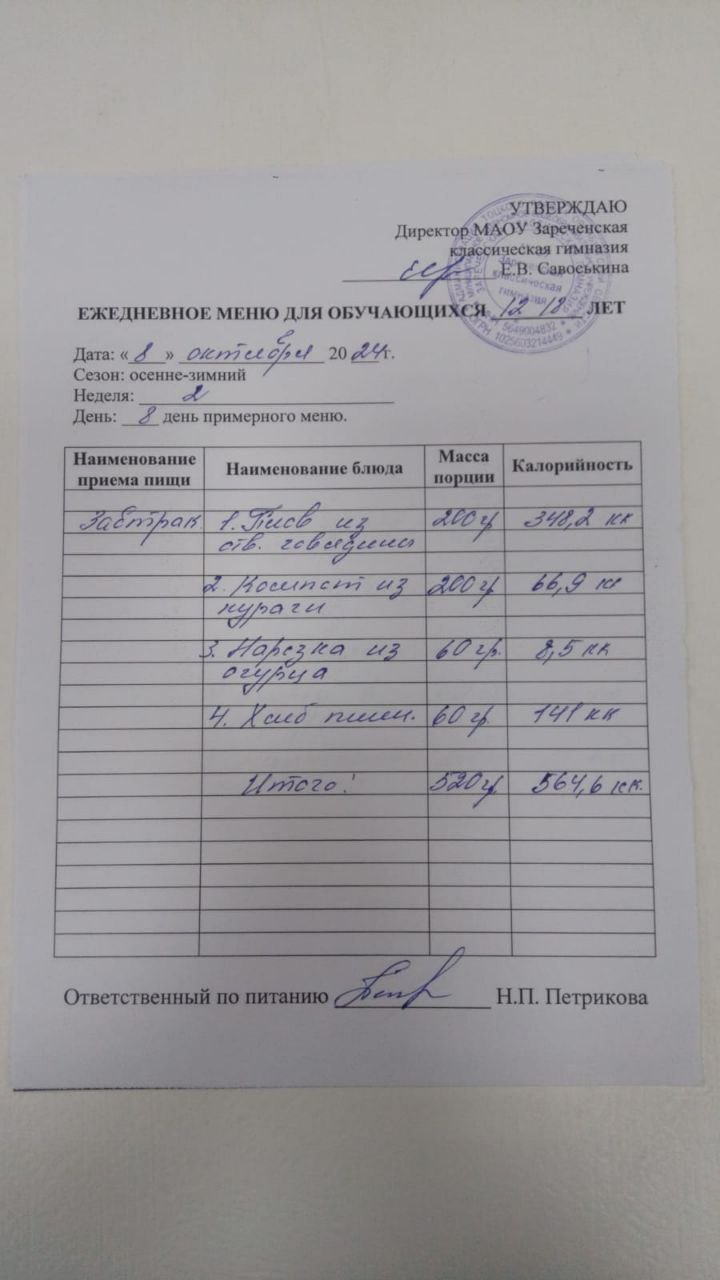 УТВЕРЖДАЮ
Директор МАОУ Зареченская
классическая гимназия
Е.В. Савоськина
ЕЖЕДНЕВНОЕ МЕНЮ ДЛЯ ОБУЧАЮЩИХСЯ 12 18 ЛЕТ
Дата: « 8 » октября 20 24 г.
Сезон: осенне-зимний
Неделя: 2
День: 8 день примерного меню.
Наименование приема пищи Наименование блюда Масса порции Калорийность
Завтрак 1. Плов из 200 гр 348,2 кк
отв. говядины
2. Компот из 200 гр 66,9 кк
кураги
3. Нарезка из 60 гр. 8,5 кк
огурца
4. Хлеб пшен. 60 гр 141 кк
Итого: 520 гр 564,6 кк.
Ответственный по питанию Н.П. Петрикова
классическая
гимназия
5649004832
ОГРН 1025603214449